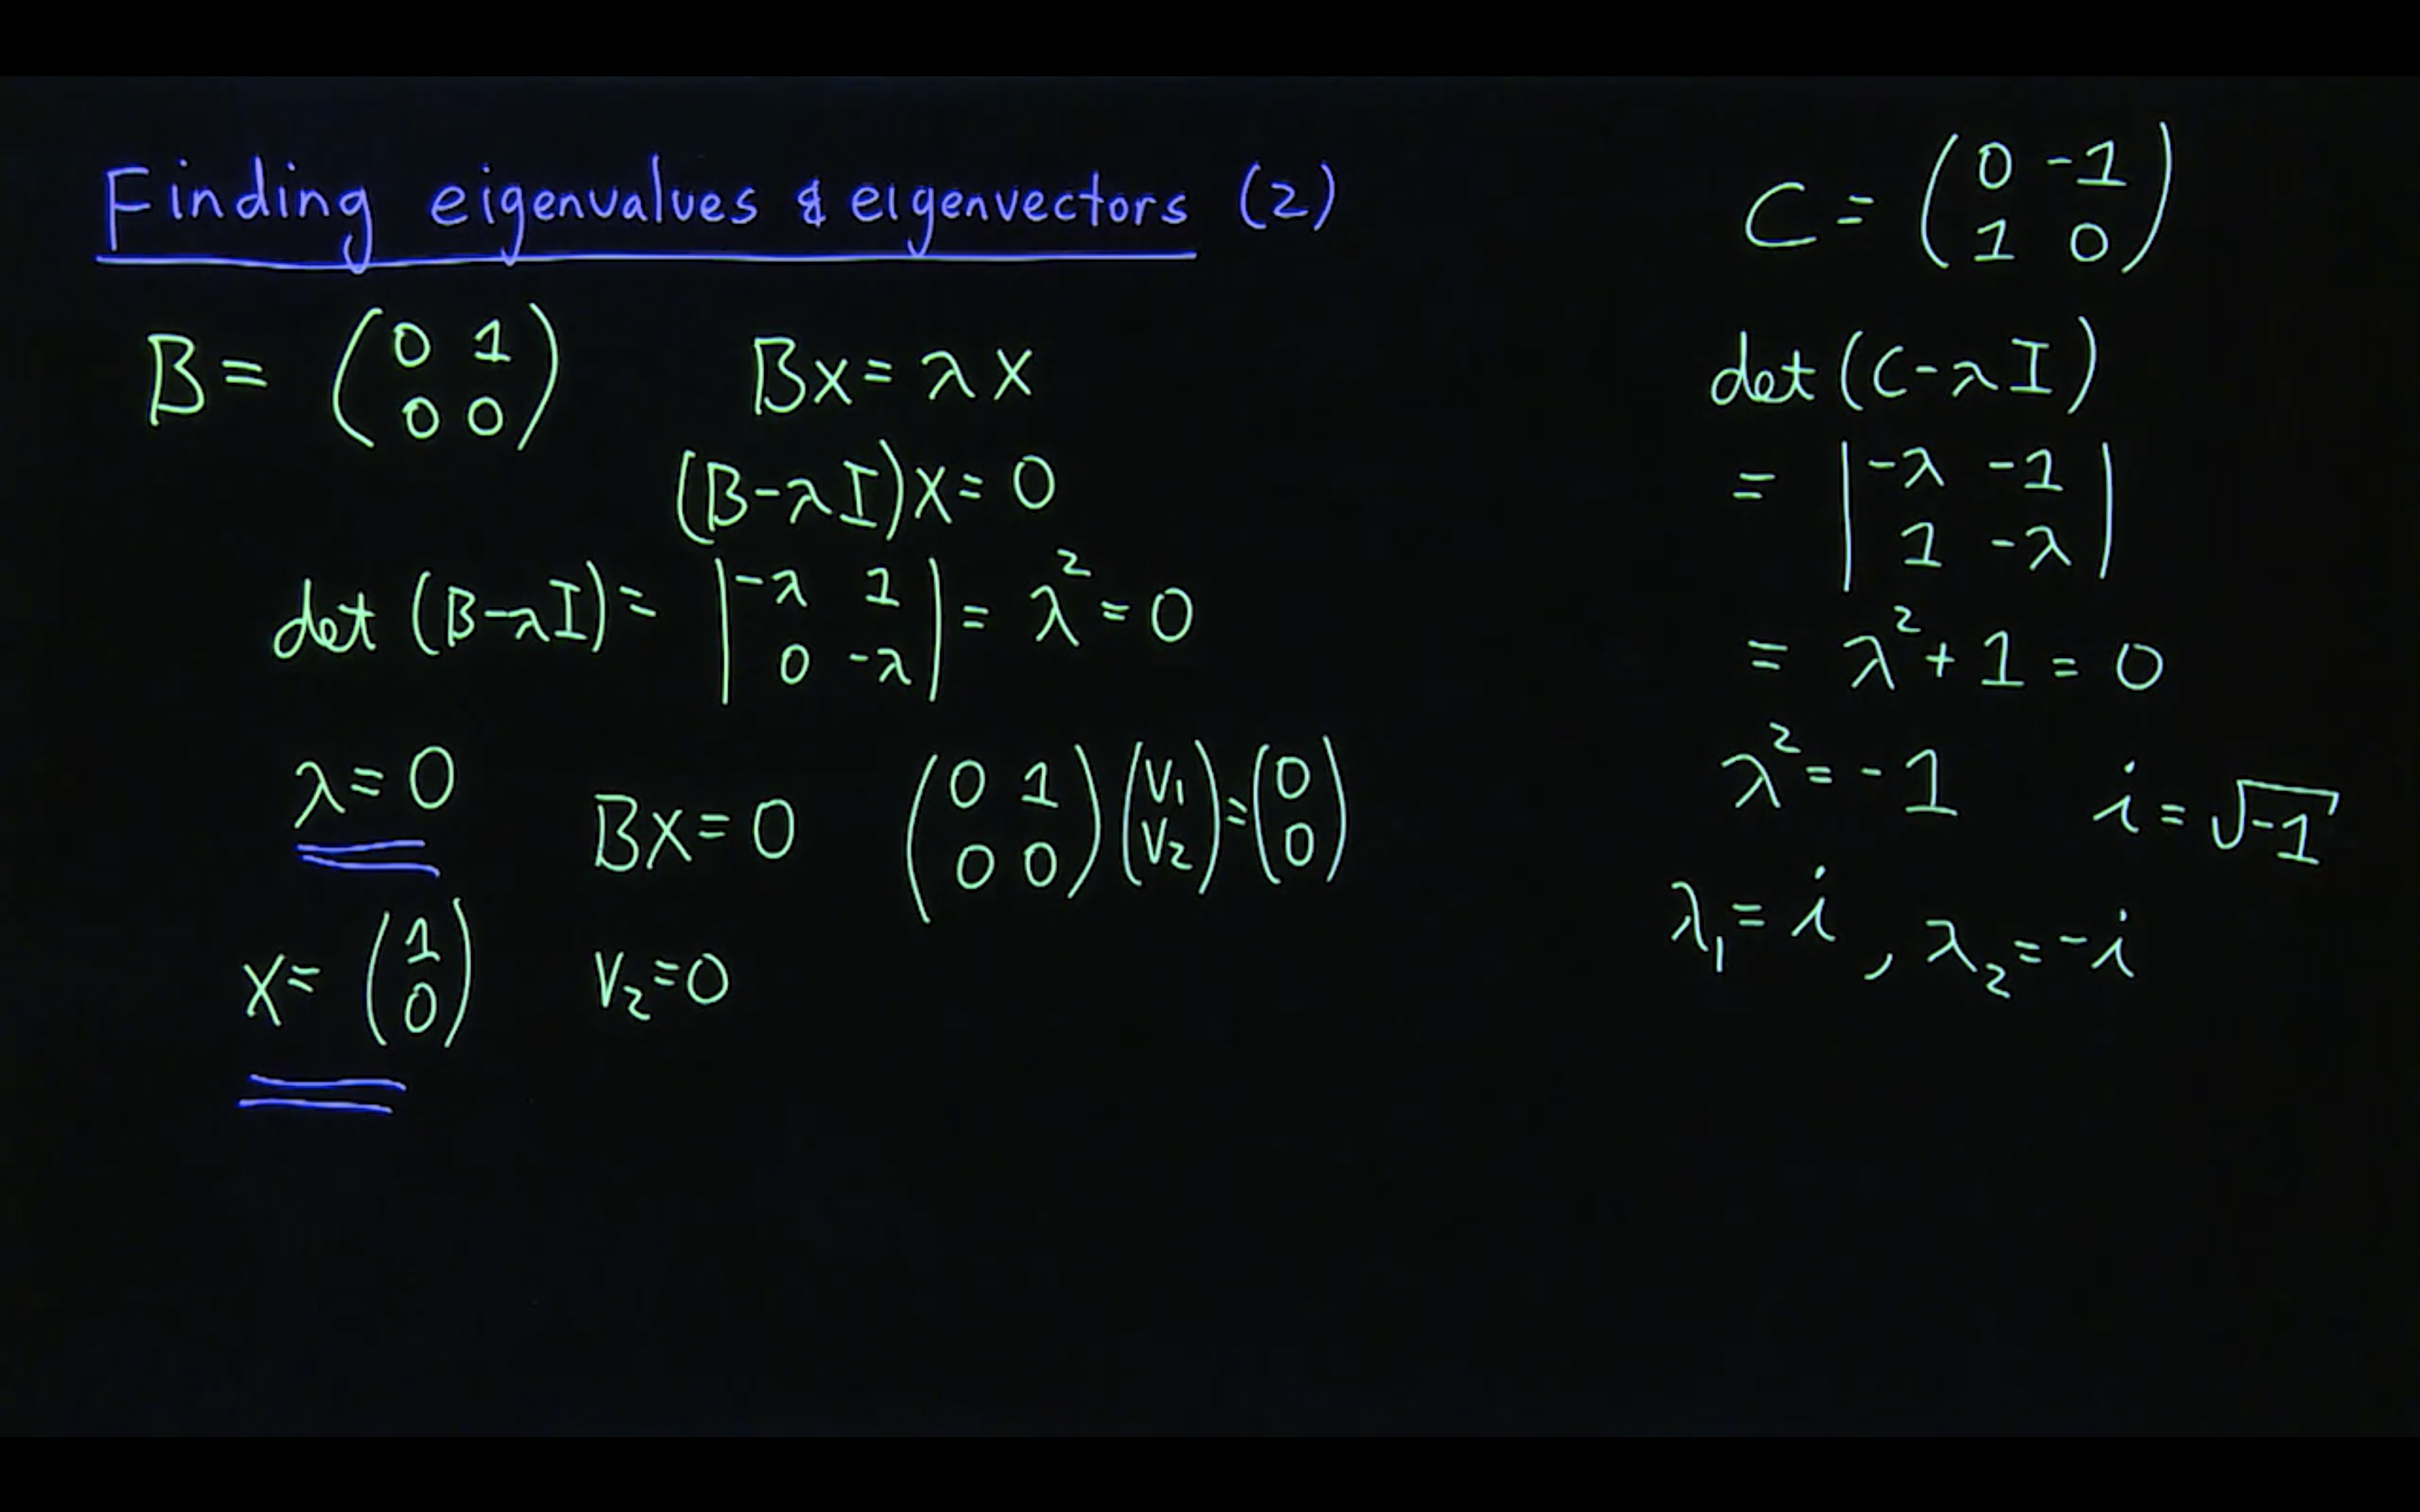 Finding eigenvalues & eigenvectors (2)
B = (0 1
0 0)
Bx = λx
(B-λI)x = 0
det (B-λI) = |-λ 1
0 -λ| = λ² = 0
λ = 0
Bx = 0
(0 1
0 0) (v₁
v₂) = (0
0)
x = (1
0)
v₂ = 0
C = (0 -1
1 0)
det (C-λI)
= |-λ -1
1 -λ|
= λ² + 1 = 0
λ² = -1
i = √-1
λ₁ = i , λ₂ = -i